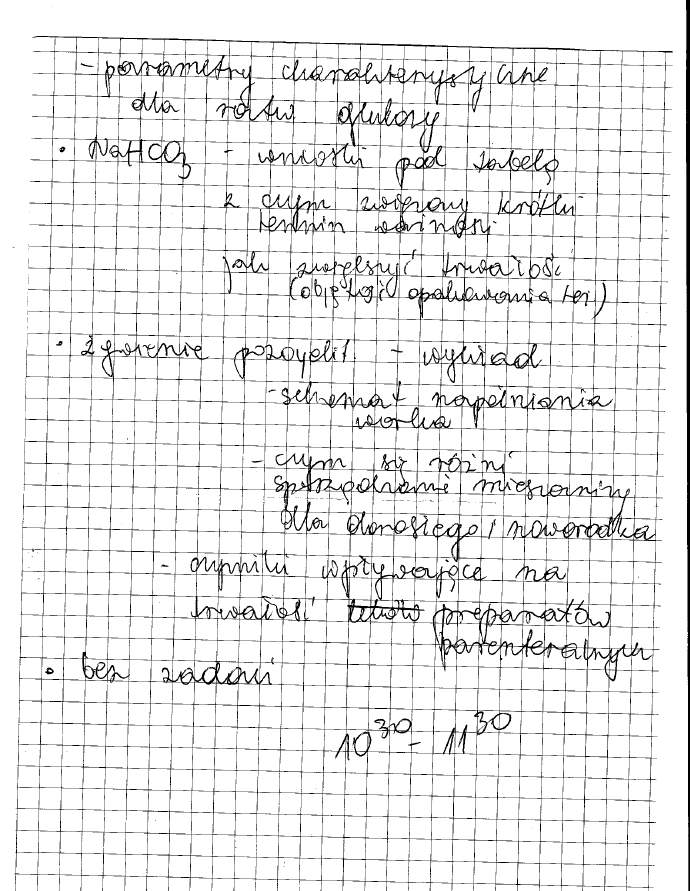 - parametry charakterystyczne
dla roztw glukozy
• NaHCO3 - wnioski pod tabelą
z czym związany krótki
termin ważności
jak zwiększyć trwałość
(obję tość opakowania też)
• żywienie pozajelit - wykład
- schemat napełniania
worka
- czym się różni
sporządzanie mieszaniny
dla dorosłego i noworodka
- czynniki wpływające na
trwałość preparatów
parenteralnych
• bez zadań
10 30 - 11 30